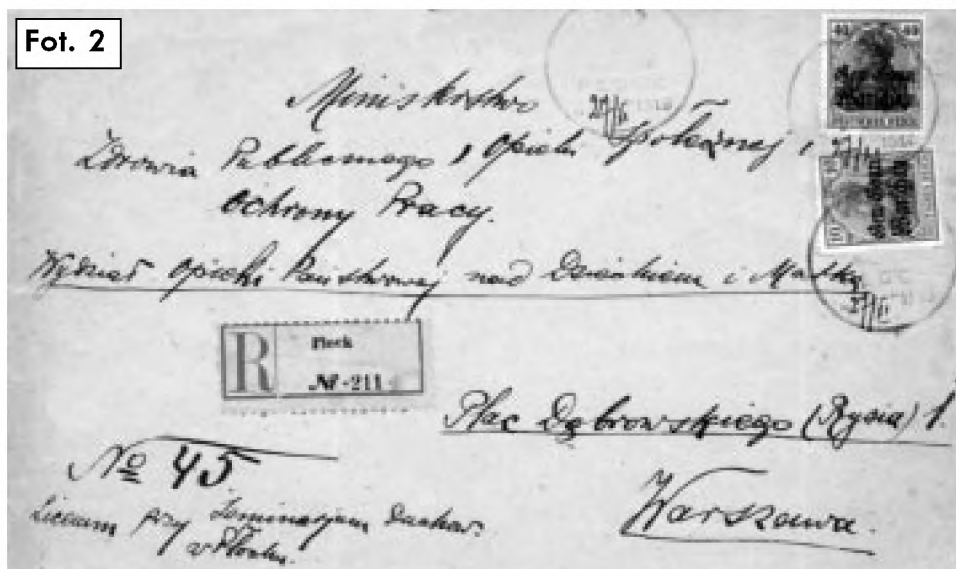 Fot. 2
Ministerstwo
Zdrowia Publicznego i Opieki Społecznej i
Ochrony Pracy.
Wydział Opieki Państwowej nad Dzieckiem i Matką
R
Plock
№ -211
Plac Dąbrowskiego (Rysia) 1.
Warszawa.
No 45
Liceum przy Seminarjum Duchow.
w Płocku.